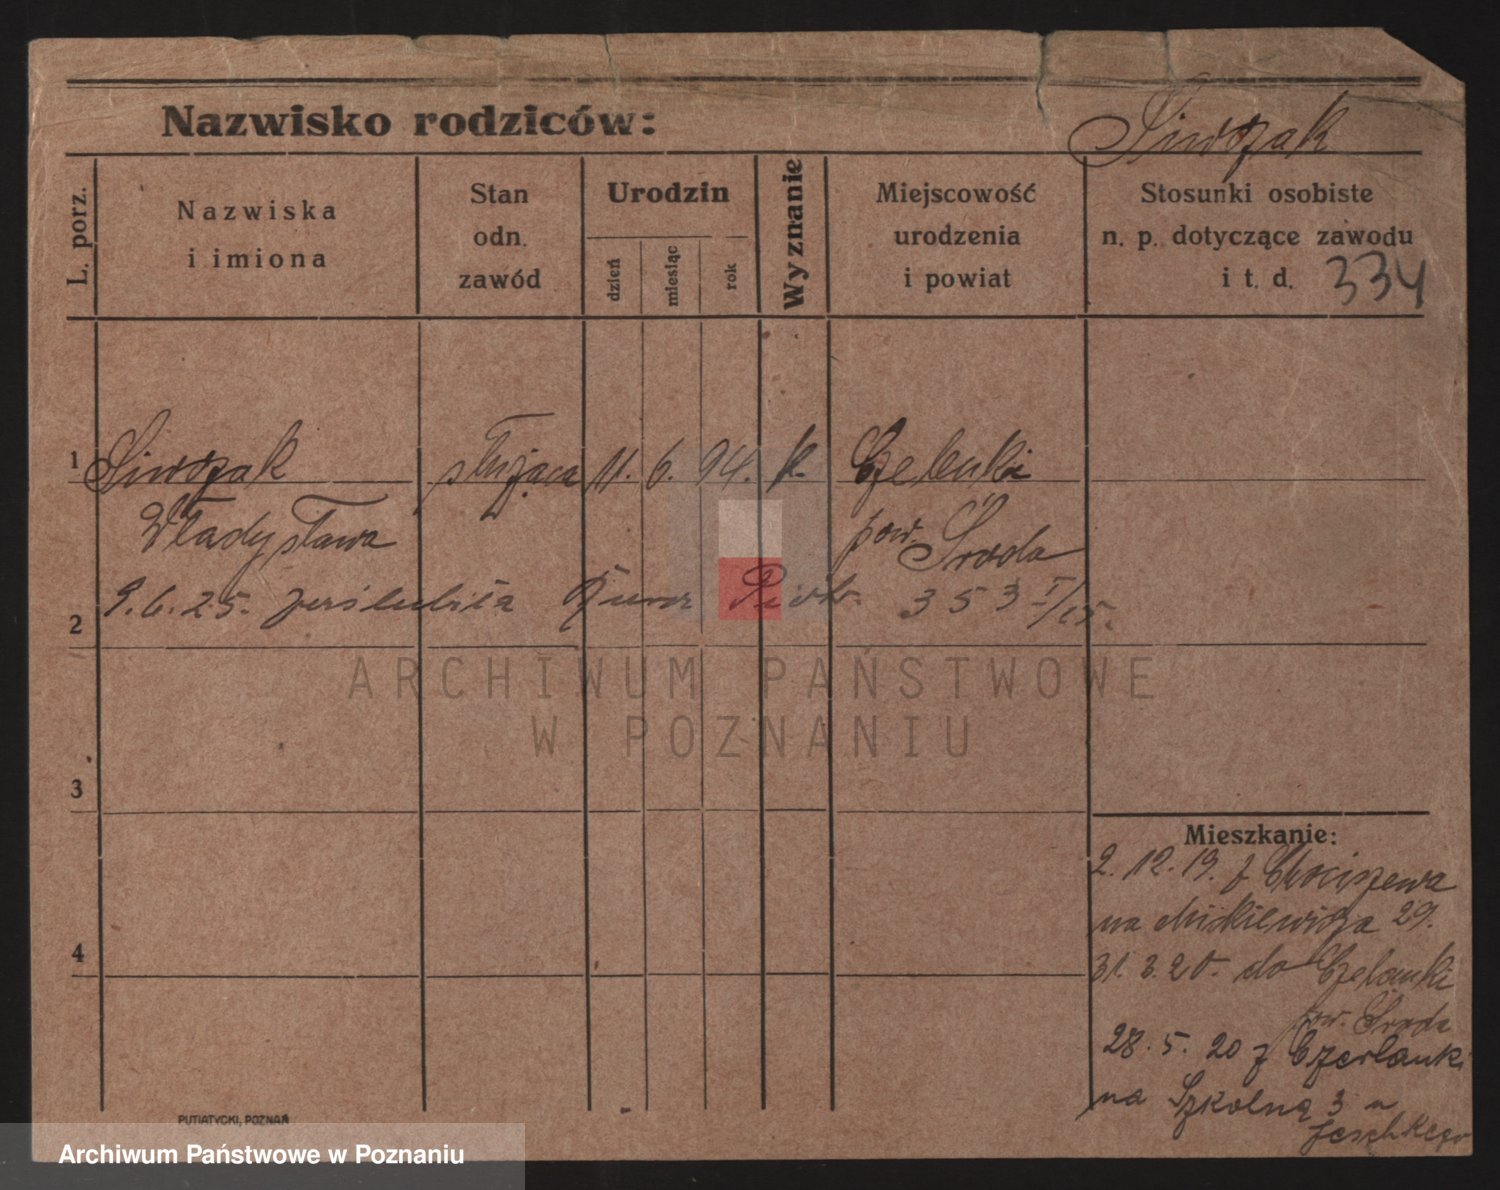 Nazwisko rodziców: Siwczak
L. porz.
Nazwiska
i imiona
Stan
odn.
zawód
Urodzin
dzień
miesiąc
rok
Wyznanie
Miejscowość
urodzenia
i powiat
Stosunki osobiste
n. p. dotyczące zawodu
i t. d. 334
1 Siwczak służąca 11. 6. 94. k.
Władysława pow. Środa
9.6.25. zaślubiła Piotr 353 I/25.
2
3
4
Mieszkanie:
2. 12. 19. z Chociszewa
na Mickiewicza 29.
31. 3. 20. do Czelanki
pow. Środa
28. 5. 20 z Czerlanki
na Szkolną 3 u
Jeschkego
PUTIATYCKI, POZNAŃ
ARCHIWUM PAŃSTWOWE
W POZNANIU
Archiwum Państwowe w Poznaniu